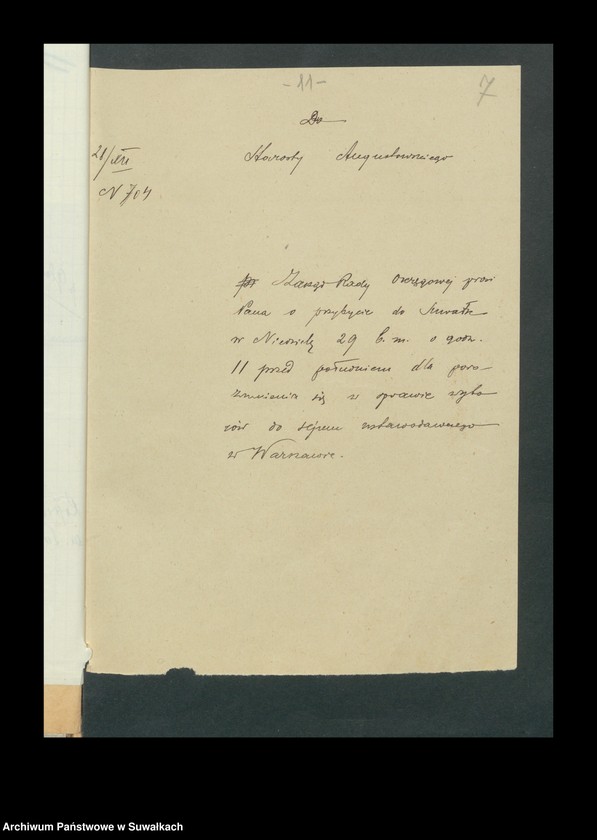 -11-
7
Do
Starosty Augustowskiego
21/XII
N 704
Zarząd Rady Okręgowej prosi
Pana o przybycie do Suwałk
w Niedzielę 29 b.m. o godz.
11 przed południem dla poro-
zumienia się w sprawie wybo
rów do sejmu ustawodawczego
w Warszawie.
Archiwum Państwowe w Suwałkach